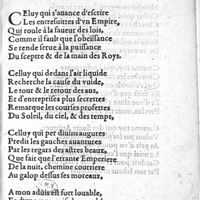 Celuy qui s'auance d'escrire
Les entresuittes d'vn Empire,
Qui roule à la faueur des lois,
Comme il faut que l'obeissance
Se rende serue à la puissance
Du sceptre & de la main des Roys.
Celluy qui dedans l'air liquide
Recherche la cause du vuide,
Le tour & le retour des ans,
Et d'entreprises plus secrettes
Remarque les courses profettes
Du Soleil, du ciel, & des temps,
Celluy qui per diuins augures
Predit les gauches auantures
Par les regars des astres beaux,
Que fait que l'errante Emperiere
De la nuit, chemine courriere
Au galop dessus ses moreaux,
A mon aduis est fort louable,